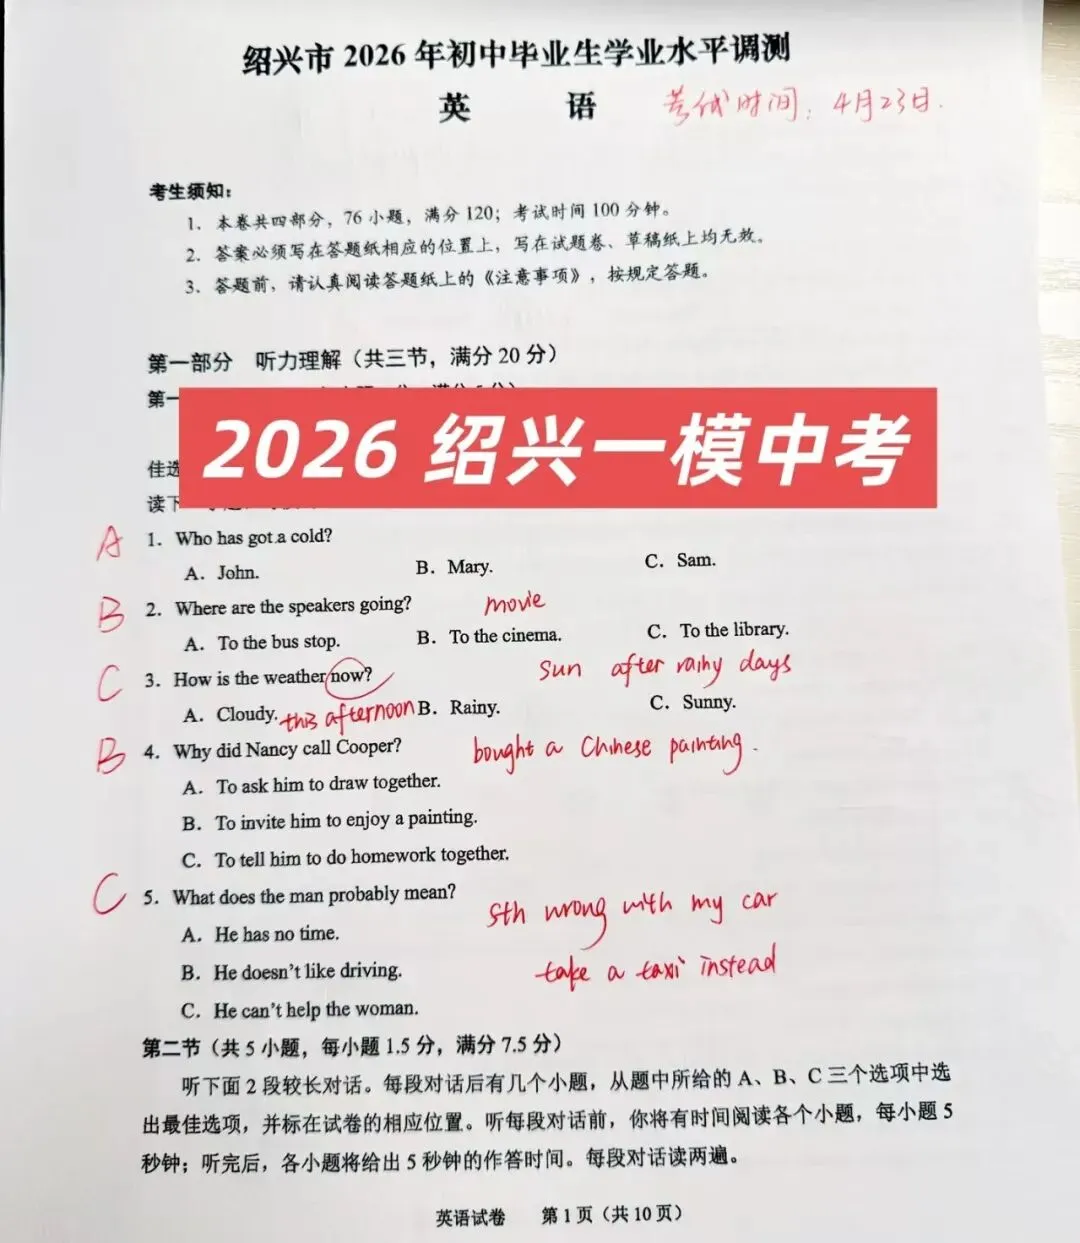 绍兴市 2026 年初中毕业生学业水平调测
英 语 考试时间：4月23日.
考生须知：
1. 本卷共四部分，76 小题，满分 120；考试时间 100 分钟。
2. 答案必须写在答题纸相应的位置上，写在试题卷、草稿纸上均无效。
3. 答题前，请认真阅读答题纸上的《注意事项》，按规定答题。
第一部分 听力理解（共三节，满分 20 分）
第一
2026 绍兴一模中考
佳选
读下
A 1. Who has got a cold?
A. John. B. Mary. C. Sam.
B 2. Where are the speakers going? movie
A. To the bus stop. B. To the cinema. C. To the library.
C 3. How is the weather now? sun after rainy days
A. Cloudy. this afternoon B. Rainy. C. Sunny.
B 4. Why did Nancy call Cooper? bought a Chinese painting.
A. To ask him to draw together.
B. To invite him to enjoy a painting.
C. To tell him to do homework together.
C 5. What does the man probably mean? sth wrong with my car
A. He has no time.
take a taxi instead
B. He doesn't like driving.
C. He can't help the woman.
第二节（共 5 小题，每小题 1.5 分，满分 7.5 分）
听下面 2 段较长对话。每段对话后有几个小题，从题中所给的 A、B、C 三个选项中选
出最佳选项，并标在试卷的相应位置。听每段对话前，你将有时间阅读各个小题，每小题 5
秒钟；听完后，各小题将给出 5 秒钟的作答时间。每段对话读两遍。
英语试卷 第 1 页（共 10 页）